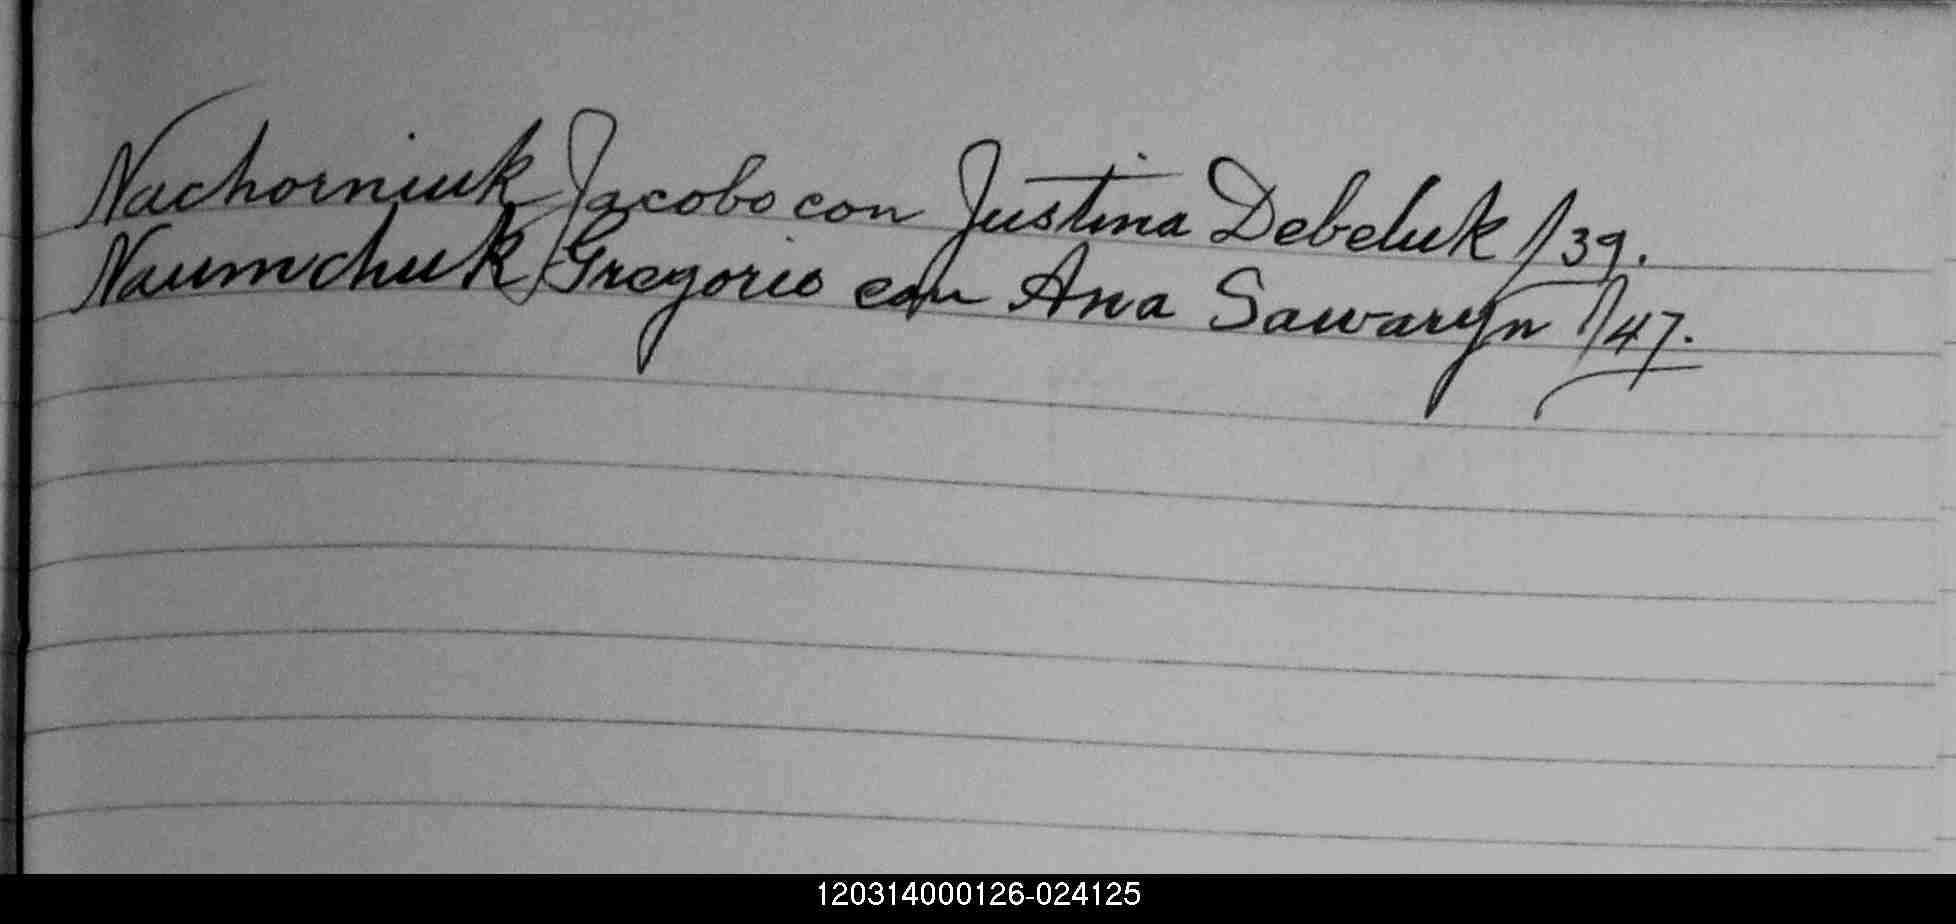 Nachorniuk Jacobo con Justina Debeluk /39.
Naumchuk Gregorio con Ana Sawaryn /47.
120314000126-024125